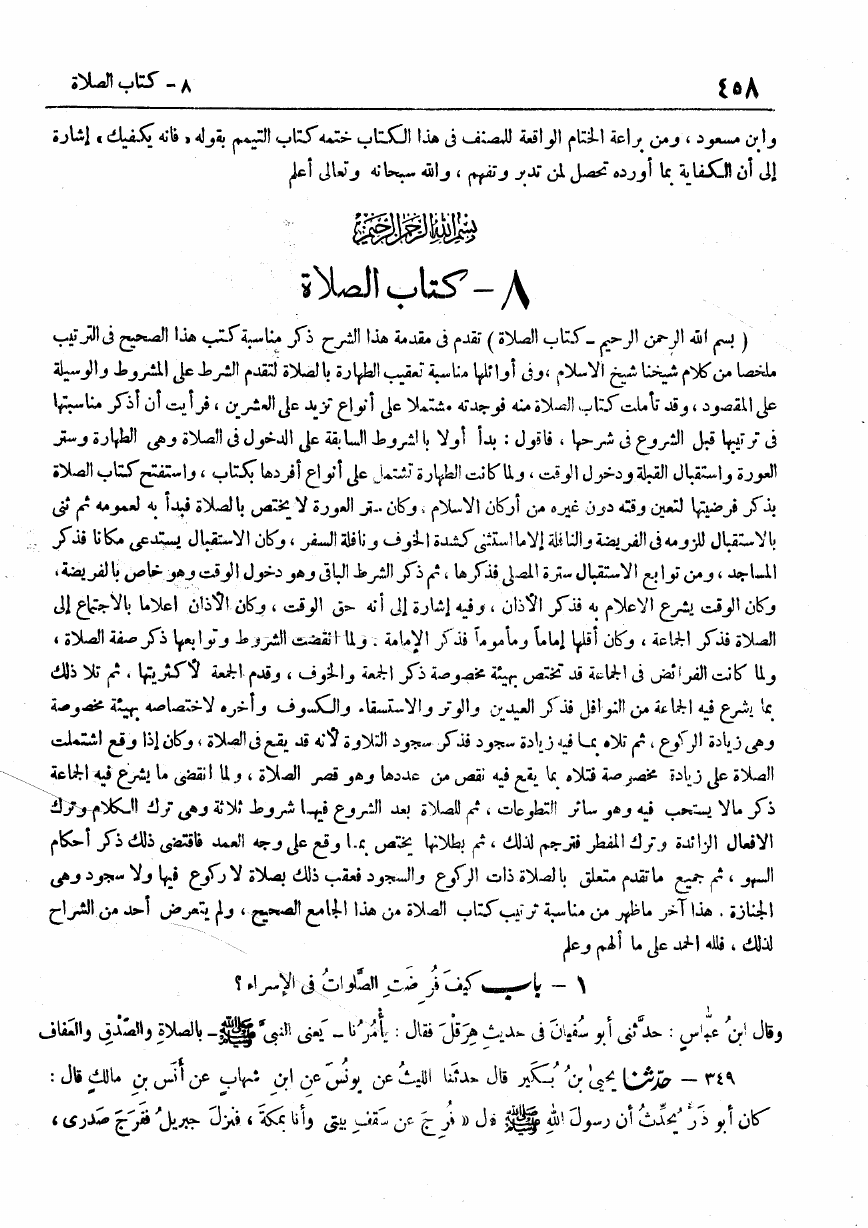 ٤٥٨
٨ - كتاب الصلاة
وابن مسعود ، ومن براعة الختام الواقعة للمصنف فى هذا الكتاب ختمه كتاب التيمم بقوله « فانه يكفيك » إشارة
إلى أن الكفاية بما أورده تحصل لمن تدبر وتفهم ، والله سبحانه وتعالى أعلم
بسم الله الرحمن الرحيم
٨ - كتاب الصلاة
( بسم الله الرحمن الرحيم - كتاب الصلاة ) تقدم فى مقدمة هذا الشرح ذكر مناسبة كتب هذا الصحيح فى الترتيب
ملخصا من كلام شيخنا شيخ الاسلام ، وفى أوائلها مناسبة تعقيب الطهارة بالصلاة لتقدم الشرط على المشروط والوسيلة
على المقصود ، وقد تأملت كتاب الصلاة منه فوجدته مشتملا على أنواع تزيد على العشرين ، فرأيت أن أذكر مناسبتها
فى ترتيبها قبل الشروع فى شرحها ، فاقول : بدأ أولا بالشروط السابقة على الدخول فى الصلاة وهى الطهارة وستر
العورة واستقبال القبلة ودخول الوقت ، ولما كانت الطهارة تشتمل على أنواع أفردها بكتاب ، واستفتح كتاب الصلاة
بذكر فرضيتها لتعين وقته دون غيره من أركان الاسلام . وكان ستر العورة لا يختص بالصلاة فبدأ به لعمومه ثم ثنى
بالاستقبال للزومه فى الفريضة والنافلة إلا ما استثنى كشدة الخوف ونافلة السفر ، وكان الاستقبال يستدعى مكانا فذكر
المساجد ، ومن توابع الاستقبال سترة المصلى فذكرها ، ثم ذكر الشرط الباقى وهو دخول الوقت وهو خاص بالفريضة،
وكان الوقت يشرع الاعلام به فذكر الأذان ، وفيه إشارة إلى أنه حق الوقت ، وكان الأذان اعلاما بالاجتماع إلى
الصلاة فذكر الجماعة ، وكان أقلها إماماً ومأموماً فذكر الإمامة . ولما انقضت الشروط وتوابعها ذكر صفة الصلاة ،
ولما كانت الفرائض فى الجماعة قد تختص بهيئة مخصوصة ذكر الجمعة والخوف ، وقدم الجمعة لأكثريتها ، ثم تلا ذلك
بما يشرع فيه الجماعة من النوافل فذكر العيدين والوتر والاستسقاء والكسوف وأخره لاختصاصه بهيئة مخصوصة
وهى زيادة الركوع ، ثم تلاه بما فيه زيادة سجود فذكر سجود التلاوة لأنه قد يقع فى الصلاة ، وكان إذا وقع اشتملت
الصلاة على زيادة مخصوصة فتلاه بما يقع فيه نقص من عددها وهو قصر الصلاة ، ولما انقضى ما يشرع فيه الجماعة
ذكر مالا يستحب فيه وهو سائر التطوعات ، ثم للصلاة بعد الشروع فيها شروط ثلاثة وهى ترك الكلام وترك
الافعال الزائدة وترك المفطر فترجم لذلك ، ثم بطلانها يختص بما وقع على وجه العمد فاقتضى ذلك ذكر أحكام
السهو ، ثم جميع ماتقدم متعلق بالصلاة ذات الركوع والسجود فعقب ذلك بصلاة لا ركوع فيها ولا سجود وهى
الجنازة . هذا آخر ماظهر من مناسبة ترتيب كتاب الصلاة من هذا الجامع الصحيح ، ولم يتعرض أحد من الشراح
لذلك ، فلله الحمد على ما ألهم وعلم
١ - باب كيفَ فُرِضَتِ الصَّلواتُ فى الإسراء ؟
وقال ابنُ عبَّاسٍ : حدثَنى أبو سُفيانَ فى حديثِ هِرَقْلَ فقال : يأْمُرُنا - يَعنى النبىَّ ﷺ - بالصلاةِ والصِّدْقِ والعَفاف
٣٤٩ - حدّثنا يحيىٰ بنُ بُكَيرٍ قال حدثَنا الليثُ عن يونُسَ عنِ ابنِ شهابٍ عن أنَسِ بنِ مالكٍ قال :
كان أبو ذَرٍّ يُحدِّثُ أن رسولَ اللهِ ﷺ قال « فُرِجَ عن سَقفِ بيتى وأنا بمكةَ ، فنزلَ جبريلُ ففَرَجَ صَدرى ،